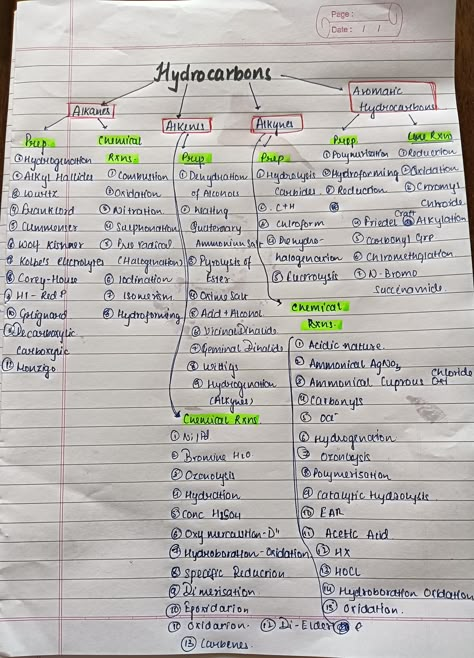 Page :
Date : / /
Hydrocarbons
Alkanes
Prep.
① Hydrogenation
② Alkyl Hallides
③ Wurtz
④ Frankland
⑤ Clemmenser
⑥ Wolf Kishner
⑦ Kolbe's Electrolytes
⑧ Corey-House
⑨ HI - Red P
⑩ Grignard
⑪ Decarboxylic
Carboxylic
Chemical
Rxns.
① Combustion
② Oxidation
③ Nitration
④ Sulphonation
⑤ Free radical
(Halogenation)
⑥ Iodination
⑦ Isomerism
⑧ Hydroforming
Alkenes
Prep
① Dehydration
of Alcohols
② Heating
Quaternary
Ammonium Salt
③ Pyrolysis of
Ester
④ Oxime Salt
⑤ Add + Alcohol
⑥ Vicinal Dihalids
⑦ Geminal Dihalids
⑧ Wittigs
⑨ Hydrogenation
(Alkynes)
Chemical Rxns.
① Ni/Pd
② Bromine H2O
③ Ozonolysis
④ Hydration
⑤ Conc H2SO4
⑥ Oxymercuration-Dⁿ
⑦ Hydroboration-Oxidation
⑧ Specific Reduction
⑨ Dimerisation
⑩ Epoxidation
⑪ Oxidation.
⑫ Di-Elder
⑬ Carbenes
Alkynes
Prep
① Hydrolysis
Carbides
② C+H
③ Chloroform
④ Dehydro-
halogenation
⑤ Electrolysis
Chemical
Rxns.
① Acidic nature.
② Ammonical AgNO3
③ Ammonical Cuprous Chloride
④ Carbonyls
⑥ Hydrogenation
⑦ Ozonolysis
⑧ Polymerisation
⑨ Catalytic Hydrolysis
⑩ EAR
⑪ Acetic Acid
⑫ HX
⑬ HOCl
⑭ Hydroboration Oxidation
⑮ Oxidation.
Aromatic
Hydrocarbons
Prep
① Polymerisation
② Hydroforming
③ Reduction
Rxns
① Reduction
② Oxidation
③ Chromyl
Chloride
④ Friedel Craft Alkylation
⑤ Carbonyl Grp
⑥ Chlromethylation
⑦ N-Bromo
Succenamide